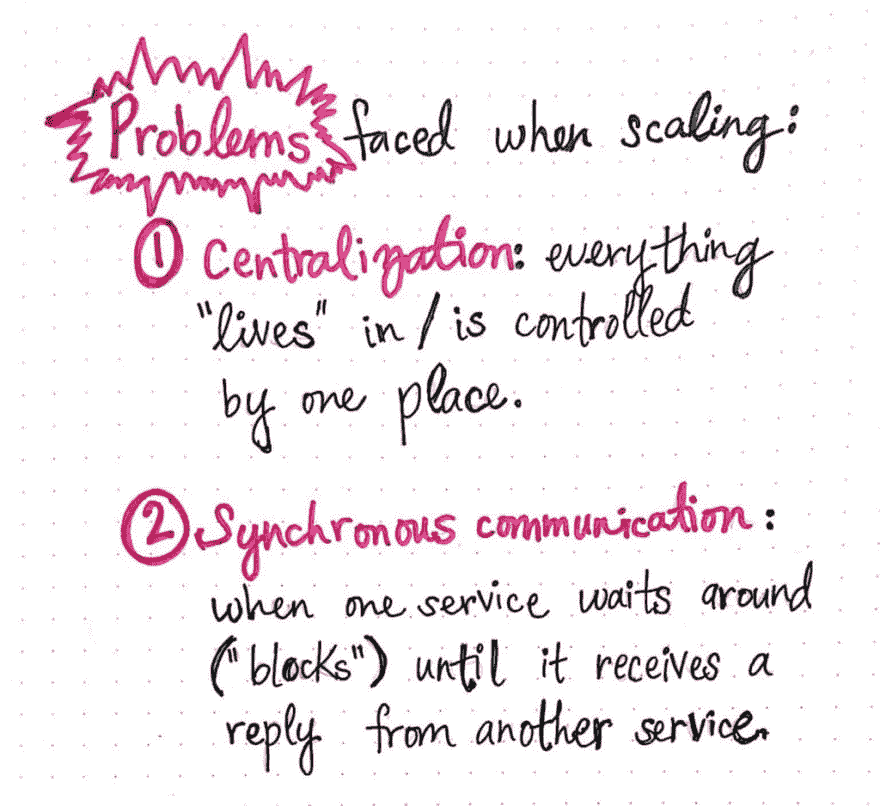 Problems faced when scaling:
① Centralization: everything
"lives" in / is controlled
by one place.
② Synchronous communication:
when one service waits around
("blocks") until it receives a
reply from another service.